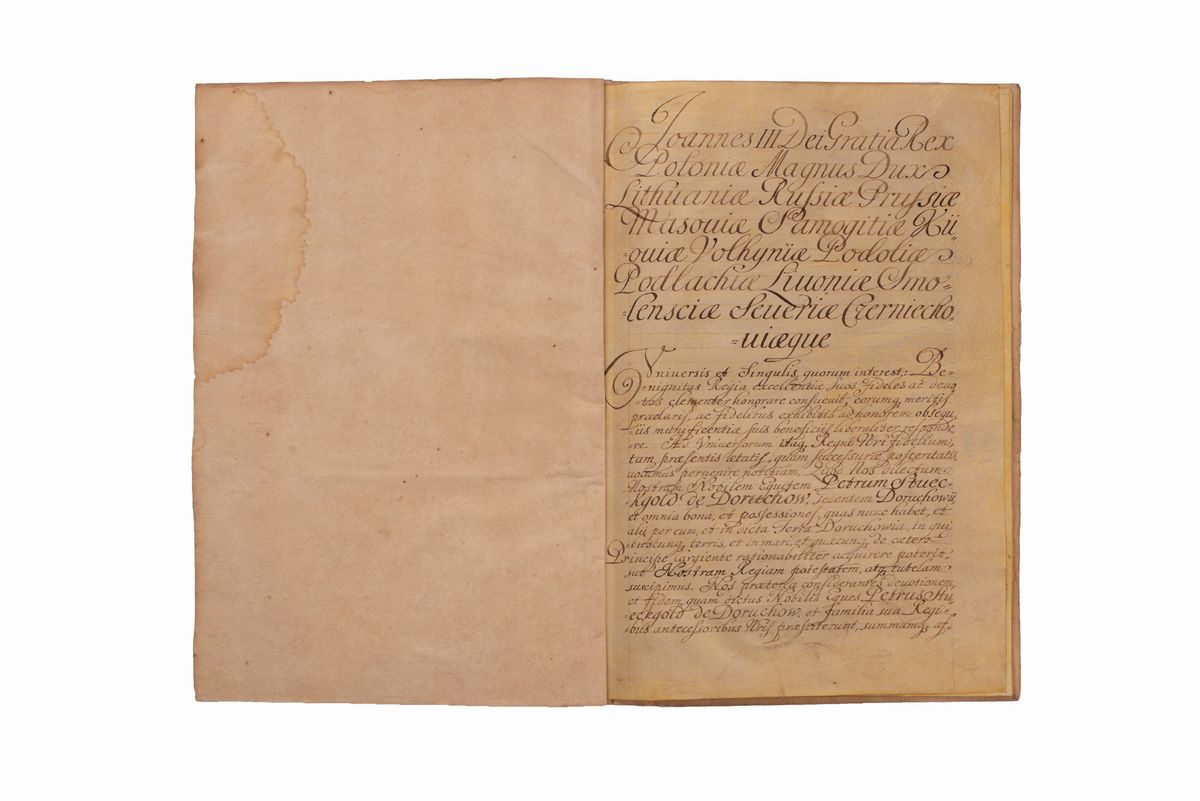 Joannes III Dei Gratia Rex
Poloniæ Magnus Dux
Lithuaniæ Russiæ Prussiæ
Masoviæ Samogitiæ Kii-
=oviæ Volhyniæ Podoliæ
Podlachiæ Livoniæ Smo=
=lensciæ Severiæ Czerniecho=
=viæque
Vniversis et Singulis, quorum interest: Be=
=nignitas Regia excellentiæ suos fideles ac devo
tos clementer honorare consuevit, eorumq meritis
præclaris, ac fidelibus exhibitis ad honorem obsequ=
=iis munificentiæ suis beneficiis liberaliter responde=
=re. Ad Vniversorum itaq Regni Nri fidelium,
tam, præsentis ætatis, quam successuræ posteritatis
volumus pervenire notitiam, Quod Nos dilectum
Nostrum Nobilem Equitem Petrum Stuec=
=kgold de Doruchow, sedentem Doruchowii,
et omnia bona, et possessiones, quas nunc habet, et
alii per eum, et in dicta Terra Doruchowia, in qui
=buscunq terris, et in mari, et quæcunq de cætero
Principe largiente rationabiliter acquirere poterit,
sub Nostram Regiam potestatem, atq tutelam
suscipimus. Nos præterea considerantes devotionem,
et fidem, quam dictus Nobilis Eques Petrus Stu=
=eckgold de Doruchow, et familia sua Regi=
=bus antecessoribus Nris præstiterunt, summumq af=